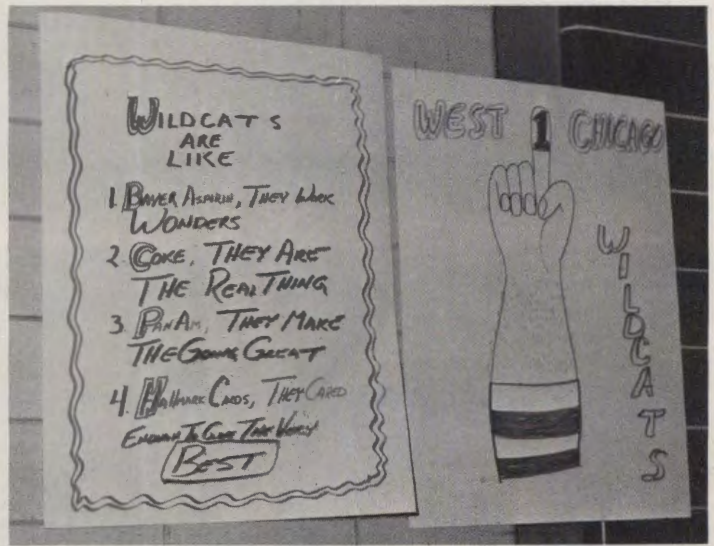 WILDCATS
ARE
LIKE
1. BAYER ASPIRIN, THEY WORK
WONDERS
2. COKE, THEY ARE
THE REAL THING
3. PAN AM, THEY MAKE
THE GOING GREAT
4. HALLMARK CARDS, THEY CARED
ENOUGH TO GIVE THE VERY
BEST
WEST 1 CHICAGO
WILDCATS